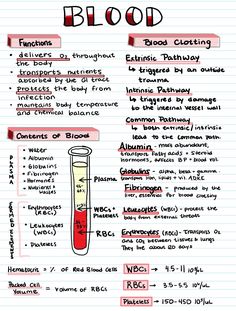 BLOOD
Functions
• delivers O₂ throughout
the body
• transports nutrients
absorbed by the GI tract
• protects the body from
infection
• maintains body temperature
and chemical balance
Blood Clotting
Extrinsic Pathway
↳ triggered by an outside
trauma
Intrinsic Pathway
↳ triggered by damage
to the internal vessel wall
Common Pathway
↳ both extrinsic/intrinsic
lead to the common Path.
Contents of Blood
PLASMA
• Water
• Albumin
• Globulins
• Fibrinogen
• Hormones
• Nutrients &
Wastes
FORMED ELEMENTS
• Erythrocytes
(RBCs)
• Leukocytes
(WBCs)
• Platelets
Plasma
WBCs +
Platelets
RBCs
Albumin - most abundant,
transports fatty acids + steroid
hormones, affects BP + blood vol.
Globulins - alpha, beta + gamma
transport ion, lipids + vit. ADEK
Fibrinogen - produced by the
liver, essential for blood clotting
Leukocytes (WBCs) - protect the
body from external threats
Erythrocytes (RBCs) - Transports O2
and CO2 between tissues & lungs
They live about 120 days
Hematocrit = % of Red Blood Cells
Packed Cell
Volume = volume of RBCs
WBCs → 4.5-11
RBCs → 3.5-5.5
Platelets → 150-450